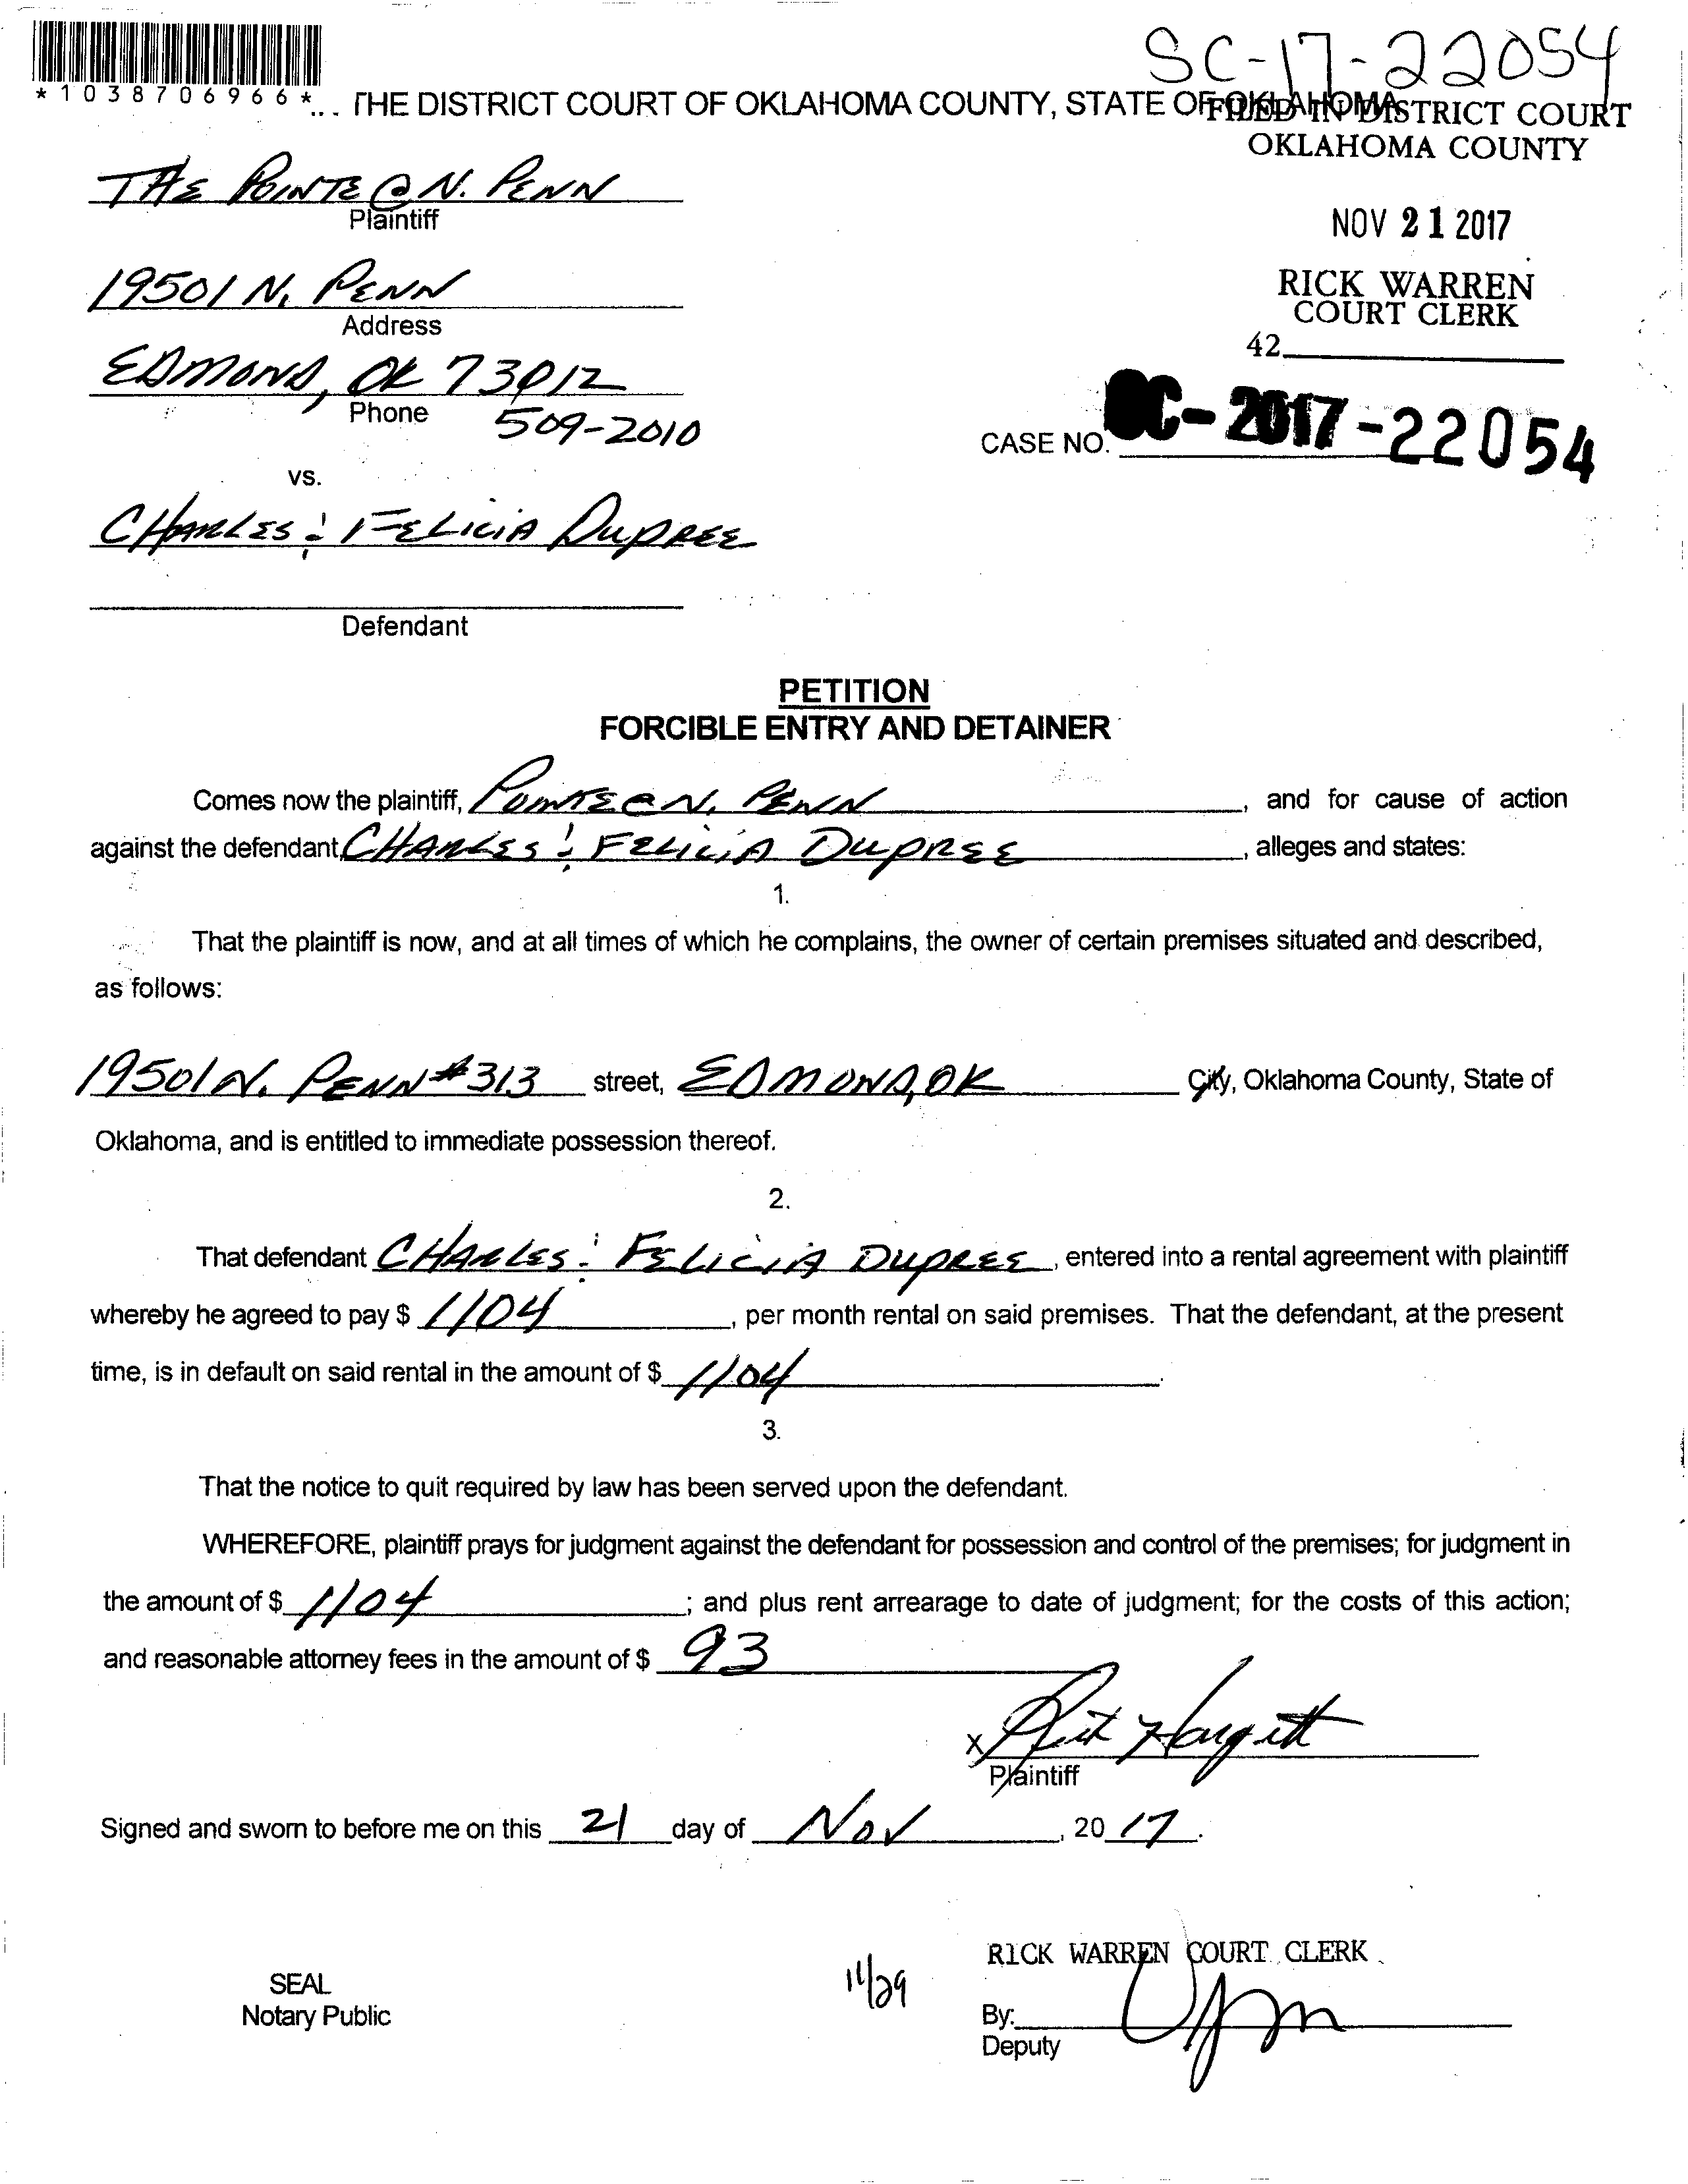 SC-17-22054
*1038706966*
THE DISTRICT COURT OF OKLAHOMA COUNTY, STATE OF OKLAHOMA
FILED IN DISTRICT COURT
OKLAHOMA COUNTY
THE POINTE @ N. PENN
Plaintiff
NOV 21 2017
19501 N. PENN
Address
RICK WARREN
COURT CLERK
42
EDMOND, OK 73012
Phone 509-2010
CASE NO. SC-2017-22054
vs.
CHARLES & FELICIA DUPREE
Defendant
PETITION
FORCIBLE ENTRY AND DETAINER
Comes now the plaintiff, POINTE @ N. PENN, and for cause of action
against the defendant CHARLES & FELICIA DUPREE, alleges and states:
1.
That the plaintiff is now, and at all times of which he complains, the owner of certain premises situated and described,
as follows:
19501 N. PENN #313 street, EDMOND, OK City, Oklahoma County, State of
Oklahoma, and is entitled to immediate possession thereof.
2.
That defendant CHARLES & FELICIA DUPREE, entered into a rental agreement with plaintiff
whereby he agreed to pay $ 1104, per month rental on said premises. That the defendant, at the present
time, is in default on said rental in the amount of $ 1104.
3.
That the notice to quit required by law has been served upon the defendant.
WHEREFORE, plaintiff prays for judgment against the defendant for possession and control of the premises; for judgment in
the amount of $ 1104; and plus rent arrearage to date of judgment; for the costs of this action;
and reasonable attorney fees in the amount of $ 93
X
Plaintiff
Signed and sworn to before me on this 21 day of NOV, 20 17.
RICK WARREN COURT CLERK
11/29
SEAL
Notary Public
By:
Deputy